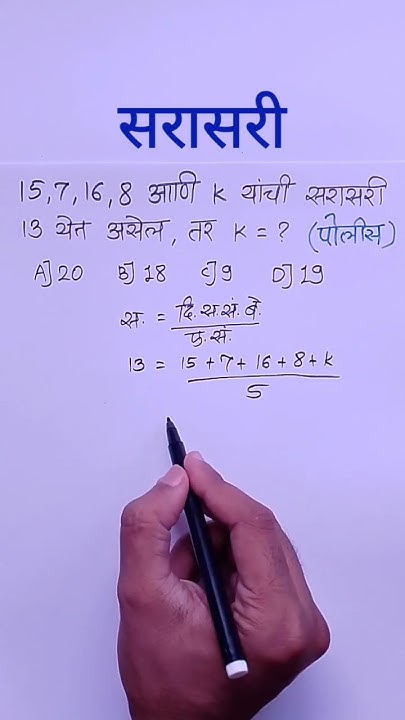 सरासरी
15, 7, 16, 8 आणि K यांची सरासरी
13 येत असेल, तर K = ? (पोलीस)
A] 20 B] 18 C] 9 D] 19
स. = दि. स. सं. बे.
ए. सं.
13 = 15 + 7 + 16 + 8 + K
5